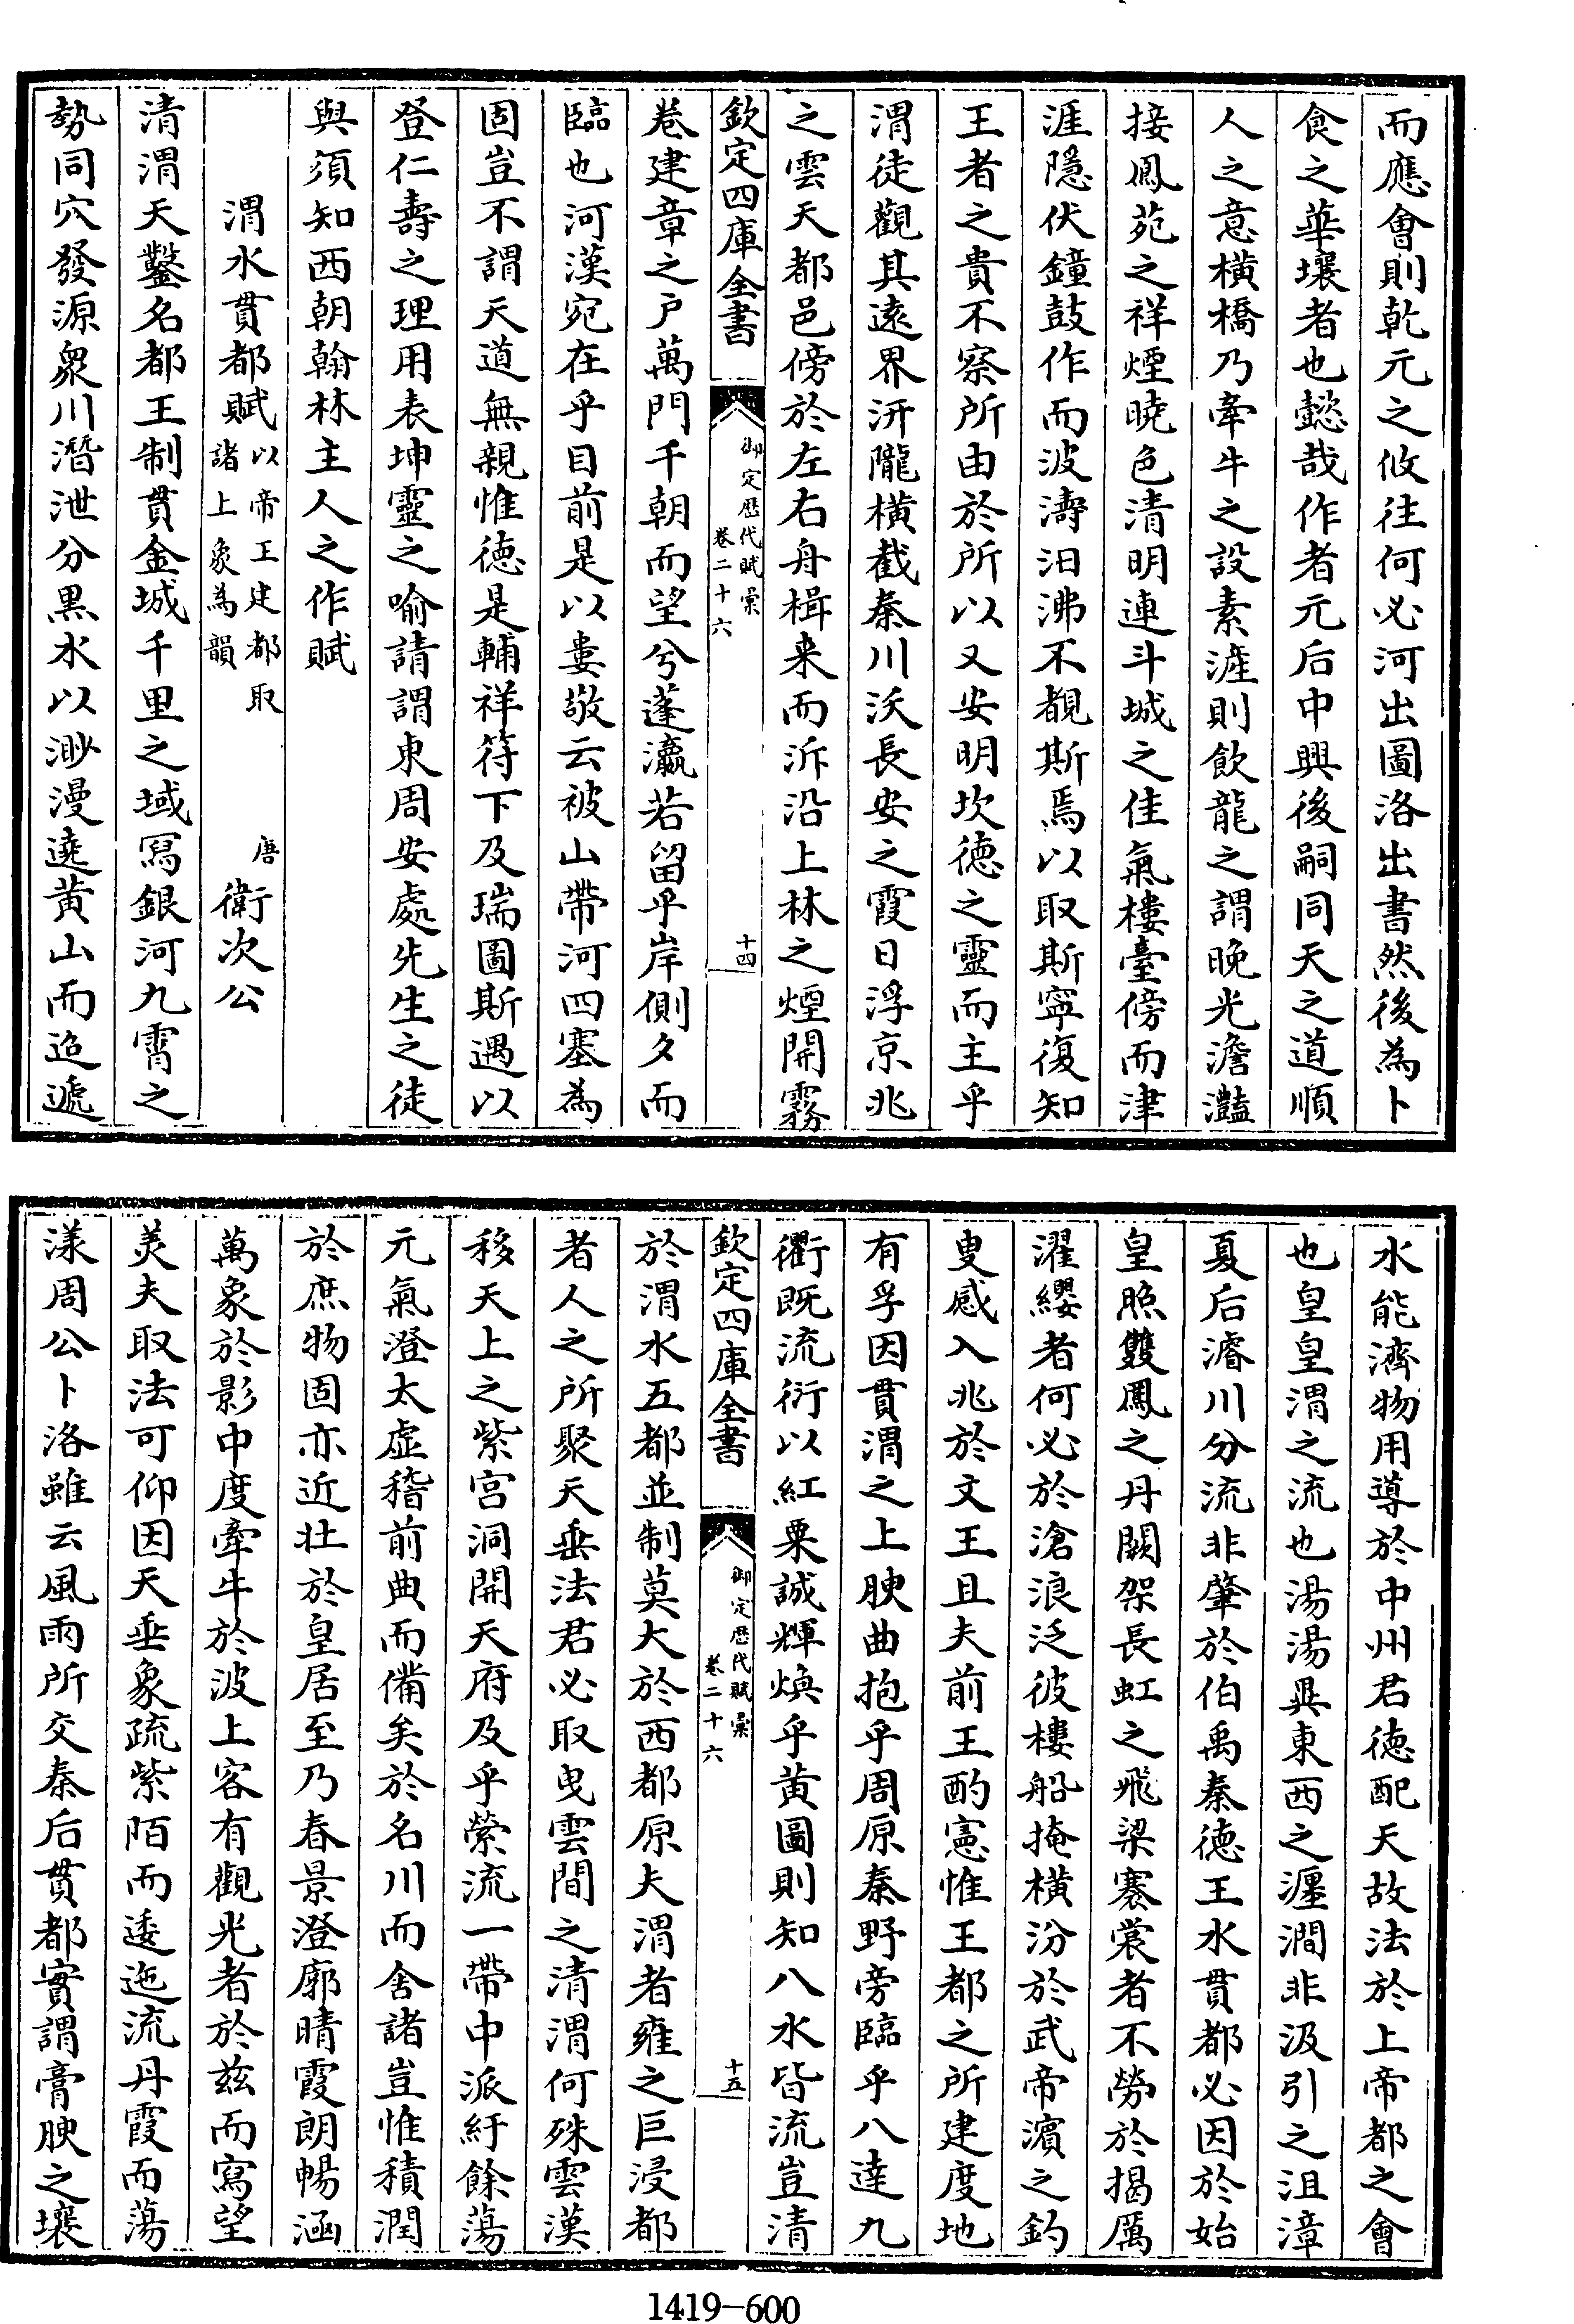 而應會則乾元之攸往何必河出圖洛出書然後為卜
食之華壤者也懿哉作者元后中興後嗣同天之道順
人之意橫橋乃牽牛之設素滻則飲龍之謂晚光澹灩
接鳳苑之祥煙曉色清明連斗城之佳氣樓臺傍而津
涯隱伏鐘鼓作而波濤汨沸不覩斯焉以取斯寧復知
王者之貴不察所由於所以又安明坎德之靈而主乎
渭徒觀其遠界汧隴橫截秦川沃長安之霞日浮京兆
之雲天都邑傍於左右舟楫来而泝沿上林之煙開霧
欽定四庫全書
御定歷代賦彙
卷二十六
十四
卷建章之户萬門千朝而望兮蓬瀛若留乎岸側夕而
臨也河漢宛在乎目前是以婁敬云被山帶河四塞為
固豈不謂天道無親惟德是輔祥符下及瑞圖斯遇以
登仁壽之理用表坤靈之喻請謂東周安處先生之徒
與須知西朝翰林主人之作賦
渭水貫都賦 以帝王建都取諸上象為韻 唐 衛次公
清渭天鑿名都王制貫金城千里之域寫銀河九霄之
勢同穴發源衆川潛泄分黑水以渺漫遶黄山而迢遞
水能濟物用導於中州君德配天故法於上帝都之會
也皇皇渭之流也湯湯異東西之瀍澗非汲引之沮漳
夏后濬川分流非肇於伯禹秦德王水貫都必因於始
皇照雙鳳之丹闕架長虹之飛梁褰裳者不勞於揭厲
濯纓者何必於滄浪泛彼樓船掩橫汾於武帝濱之釣
叟感入兆於文王且夫前王酌憲惟王都之所建度地
有孚因貫渭之上腴曲抱乎周原秦野旁臨乎八達九
衢既流衍以紅粟誠輝煥乎黄圖則知八水皆流豈清
欽定四庫全書
御定歷代賦彙
卷二十六
十五
於渭水五都並制莫大於西都原夫渭者雍之巨浸都
者人之所聚天垂法君必取曳雲間之清渭何殊雲漢
移天上之紫宫洞開天府及乎縈流一帶中派紆餘蕩
元氣澄太虛稽前典而備矣於名川而舍諸豈惟積潤
於庶物固亦近壯於皇居至乃春景澄廓晴霞朗暢涵
萬象於影中度牽牛於波上客有觀光者於兹而寫望
美夫取法可仰因天垂象疏紫陌而逶迤流丹霞而蕩
漾周公卜洛雖云風雨所交秦后貫都實謂膏腴之壤
1419-600